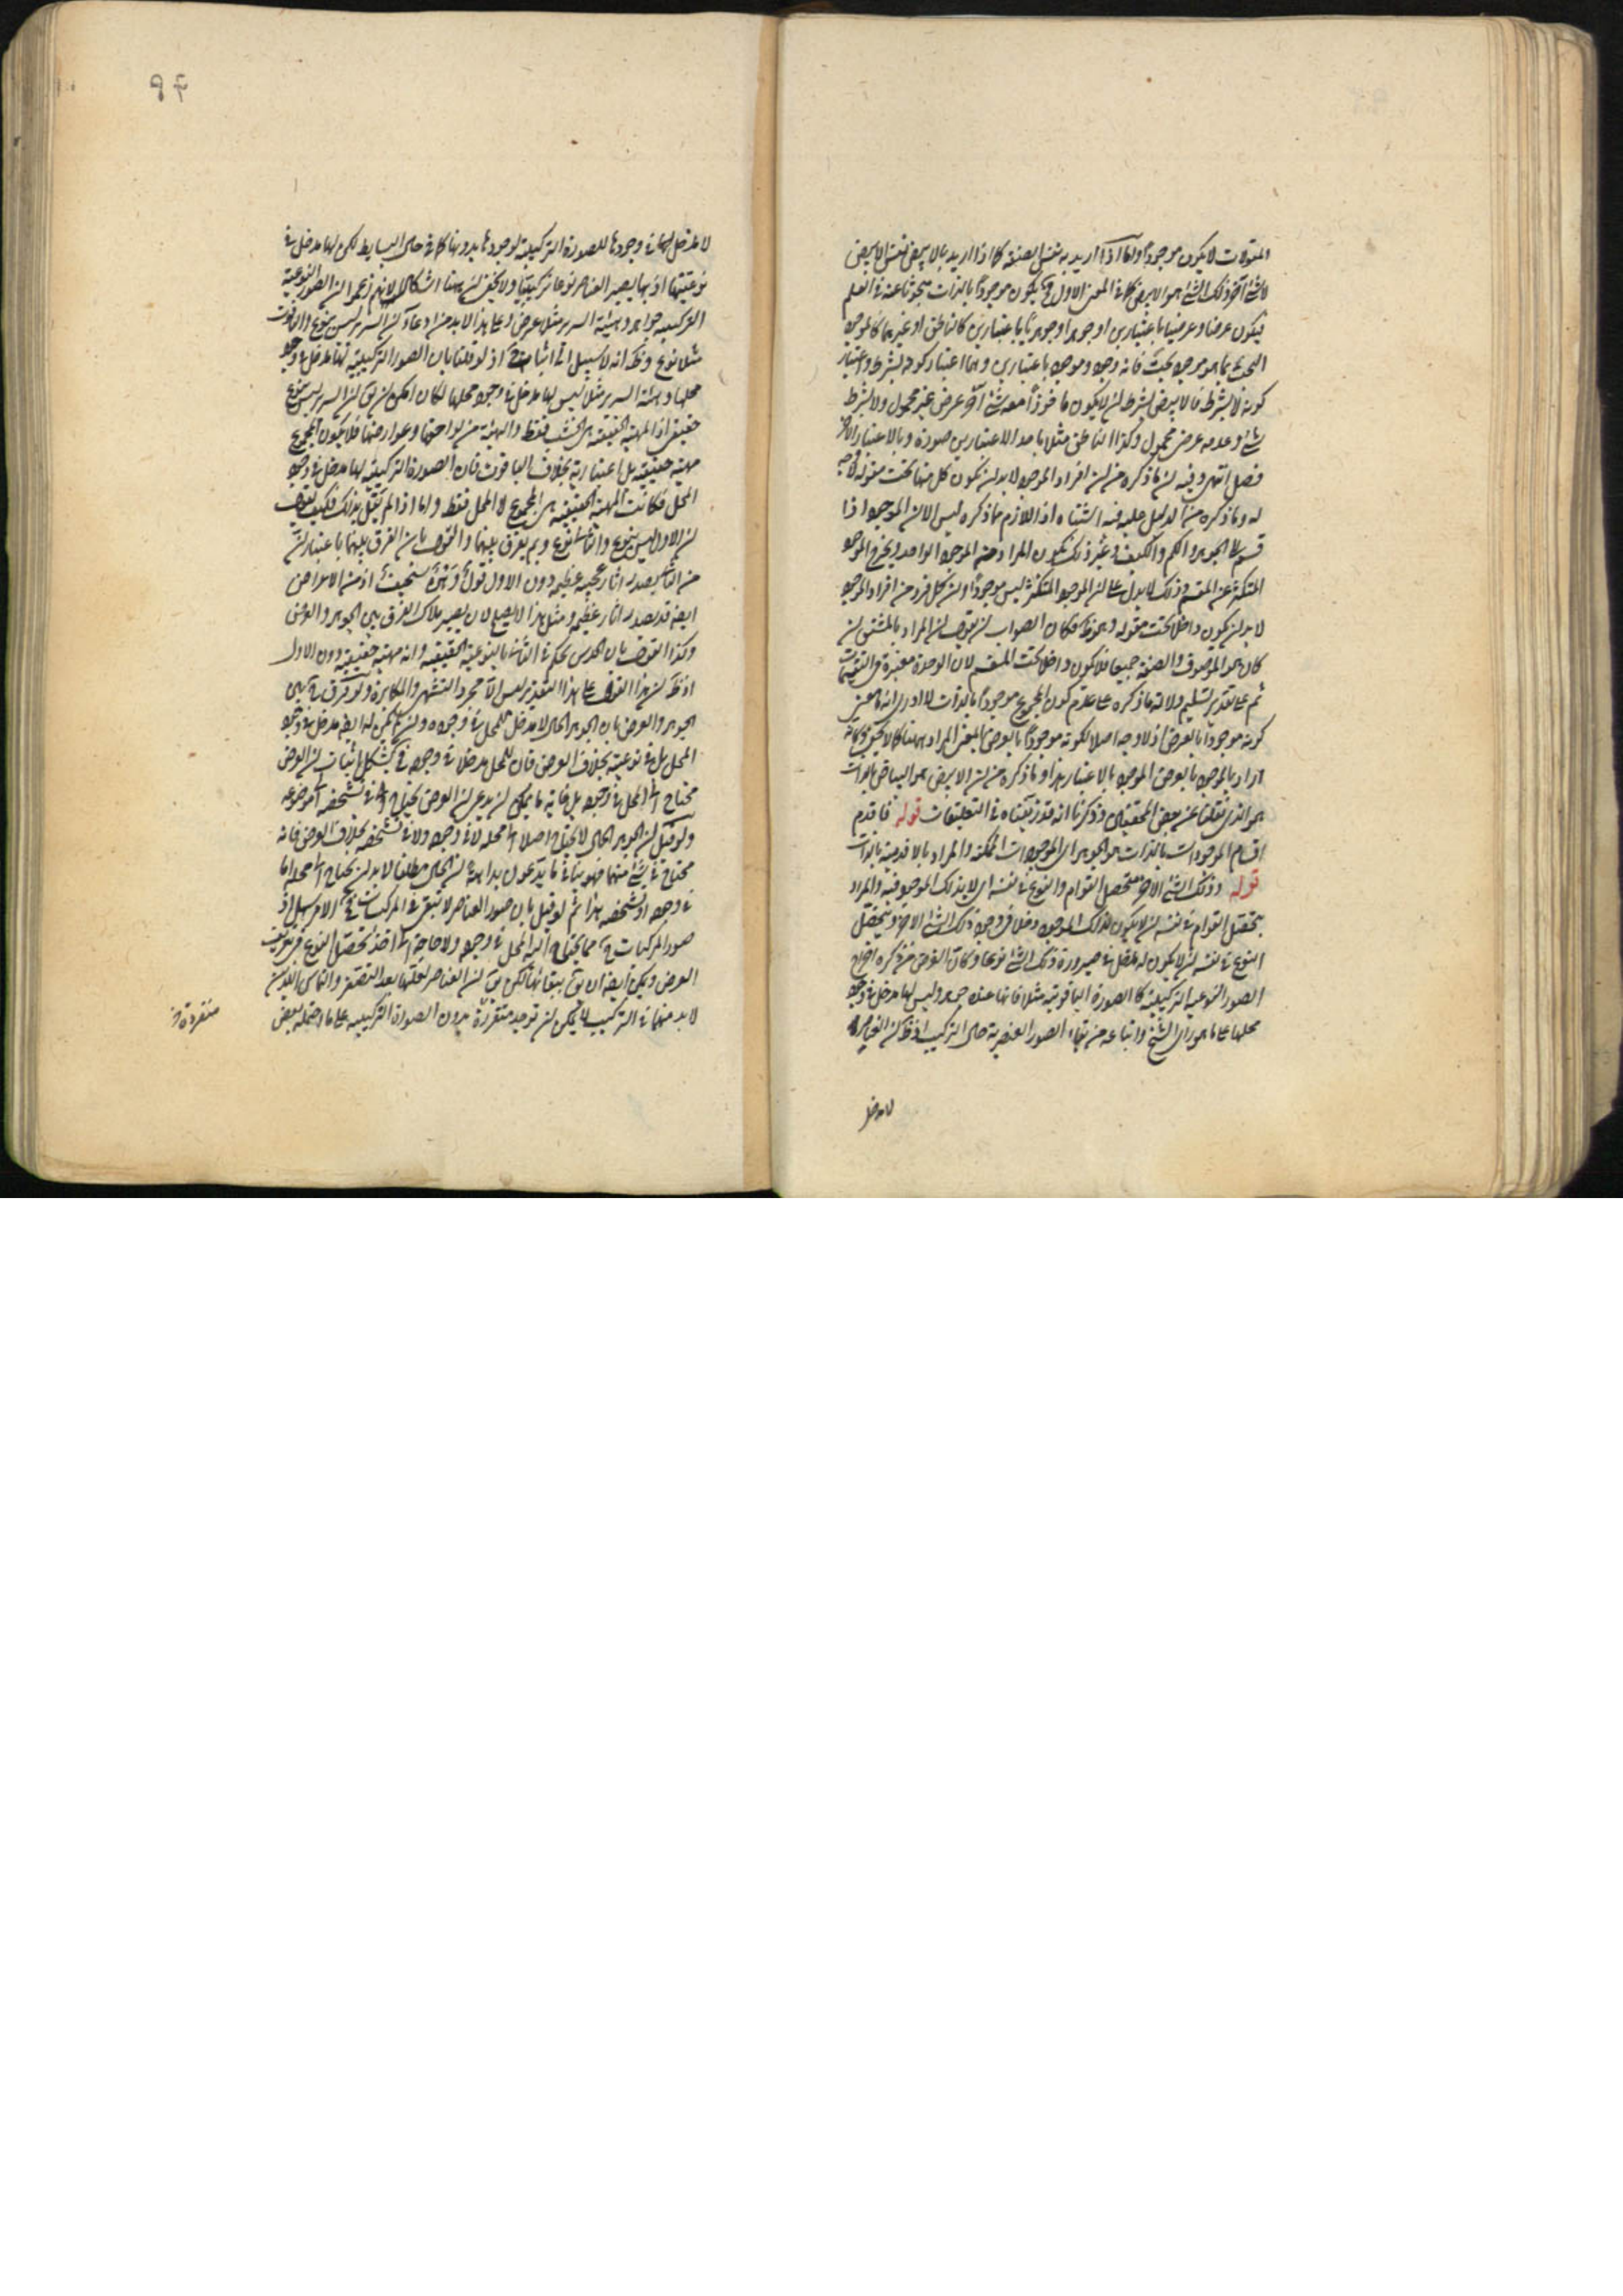 المقولات لا يكون موجودا واما اذا اريد به نفس الصفة كما اذا اريد بالابيض نفس الابيض
لا شئ آخر ذلك الشئ هو الابيض كما فى المعنى الاول فح يكون موجودا بالذات مبحوثا عنه فى العلم
فيكون عرضا وعرضيا باعتبارين او جوهرا وجوهريا باعتبارين كالناطق او غيرهما كالموجود
البحت بما هو موجود بحت فانه وجود وموجود باعتبارين وهما اعتبار كونه بشرط واعتبار
كونه لا بشرط فالابيض بشرط ان لا يكون ماخوذا معه شئ آخر عرض غير محمول ولا بشرط
شئ وعدمه عرضى محمول وكذا الناطق مثلا باحد الاعتبارين صورة وبالاعتبار الآخر
فصل انتهى وفيه ان ما ذكره من ان افراد الموجود لا بد ان يكون كل منها تحت مقولة لا وجه
له وما ذكره من الدليل عليه فيه اشتباه اذ اللازم مما ذكره ليس الا ان الموجود اذا
قسم الى الجوهر والكم والكيف وغير ذلك يكون المراد منه الموجود الواحد ويخرج الموجود
المتكثر عن المقسم وذلك لا يدل على ان الموجود المتكثر ليس موجودا وان كل فرد من افراد الموجود
لا بد ان يكون داخلا تحت مقولة وهو ظ فكان الصواب ان يقول ان المراد بالمشتق ان
كان هو الموصوف والصفة جميعا فلا يكون داخلا تحت المقسم لان الوحدة معتبرة فى التقسيمات
ثم على تقدير تسليم دلالة ما ذكره على عدم كون المجموع موجودا بالذات لا ادرى انه ما معنى
كونه موجودا بالعرض اذ لا وجه اصلا لكونه موجودا بالعرض بالمعنى المراد ههنا كما لا يخفى وكانه
اراد بالموجود بالعرض الموجود بالاعتبار هذا وما ذكره من ان الابيض هو البياض بالذات
هو الذى نقلنا عن بعض المحققين وذكرنا انه قد زيفناه فى التعليقات قوله فاقدم
اقسام الموجودات بالذات هو الجوهر اى الموجودات الممكنة والمراد بالاقدمية بالذات
قوله وذلك الشئ الآخر متحصل القوام والنوع فى نفسه اى لا بذلك الموجود فيه والمراد
بتحصل القوام فى نفسه ان لا يكون لذلك الموجود دخل فى وجود ذلك الشئ الآخر وبتحصل
النوع فى نفسه ان لا يكون له مدخل فى صيرورة ذلك الشئ نوعا وكان الغرض من ذكره اخراج
الصور النوعية التركيبية كالصورة الياقوتية مثلا فانها عنده جوهر وليس لها مدخل فى وجود
محلها على ما هو راى الشيخ واتباعه من بقاء الصور العنصرية حال التركيب اذ ظ ان العناصر
لا مدخل
٩٤
لا مدخل لها فى وجودها للصورة التركيبية لوجودها بدونها كما فى حال البسايط لكن لها مدخل فى
نوعيتها اذ بها يصير العناصر نوعا تركيبيا ولا يخفى ان ههنا اشكالا لانهم زعموا ان الصور النوعية
التركيبية جواهر وهيئة السرير مثلا عرض وعلى هذا لا بد من ادعاء ان السرير ليس بنوع والياقوت
مثلا نوع وظ انه لا سبيل الى اثباته اذ لو قلنا بان الصور التركيبية لها مدخل فى وجود
محلها وهيئة السرير مثلا ليس لها مدخل فى وجود محلها لكان امكن ان يق ان السرير ليس بنوع
حقيقى اذ المهية الحقيقية هى الخشب فقط والهيئة من لواحقها وعوارضها فلا يكون المجموع
مهية حقيقية بل اعتبارية بخلاف الياقوت فان الصورة التركيبية لها مدخل فى وجود
المحل فكانت المهية الحقيقية هى المجموع لا المحل فقط واما اذا لم يقل بذلك فكيف يقول
ان الاول ليس بنوع والثانى نوع وبم يفرق بينهما والقول بان الفرق بينهما باعتبار ان
من الثانى يصدر آثار عجيبة عظيمة دون الاول قول وهن سخيف اذ من الاعراض
ايضا قد يصدر آثار عظيمة ومثل هذا لا يصلح لان يصير ملاك الفرق بين الجوهر والعرض
وكذا القول بان الحدس يحكم فى الثانى بالنوعية الحقيقية وانه مهية حقيقية دون الاول
اذ ظ ان هذا القول على هذا التقدير ليس الا مجرد التشهى والمكابرة ولو فرق بين
الجوهر والعرض بان الجوهر الحال لا مدخل للمحل فى وجوده وان لم يكن له ايضا مدخل فى وجود
المحل بل فى نوعيته بخلاف العرض فان للمحل مدخلا فى وجوده فيشكل باثبات ان العرض
محتاج الى المحل فى وجوده بل غاية ما يمكن ان يدعى ان العرض يحتاج فى تشخصه الى موضوعه
ولو قيل ان الجوهر الحال لا يحتاج اصلا الى محله لا فى وجوده ولا فى تشخصه بخلاف العرض فانه
محتاج فى شئ منهما فهو ينافى ما يدعون بداهته ان الحال مطلقا لا بد ان يحتاج الى محله اما
فى وجوده او تشخصه هذا ثم لو قيل بان صور العناصر لا تبقى فى المركبات فح الامر سهل اذ
صور المركبات ح مما يحتاج اليه المحل فى وجوده ولا حاجة الى اخذ تحصل النوع فى تعريف
العرض ويمكن ايضا ان يق ببقائها لكن يق ان العناصر لعلها بعد التصغر والتماس اللذين
لا بد منهما فى التركيب لا يمكن ان توجد متقررة بدون الصورة التركيبية على ما احتمله بعض